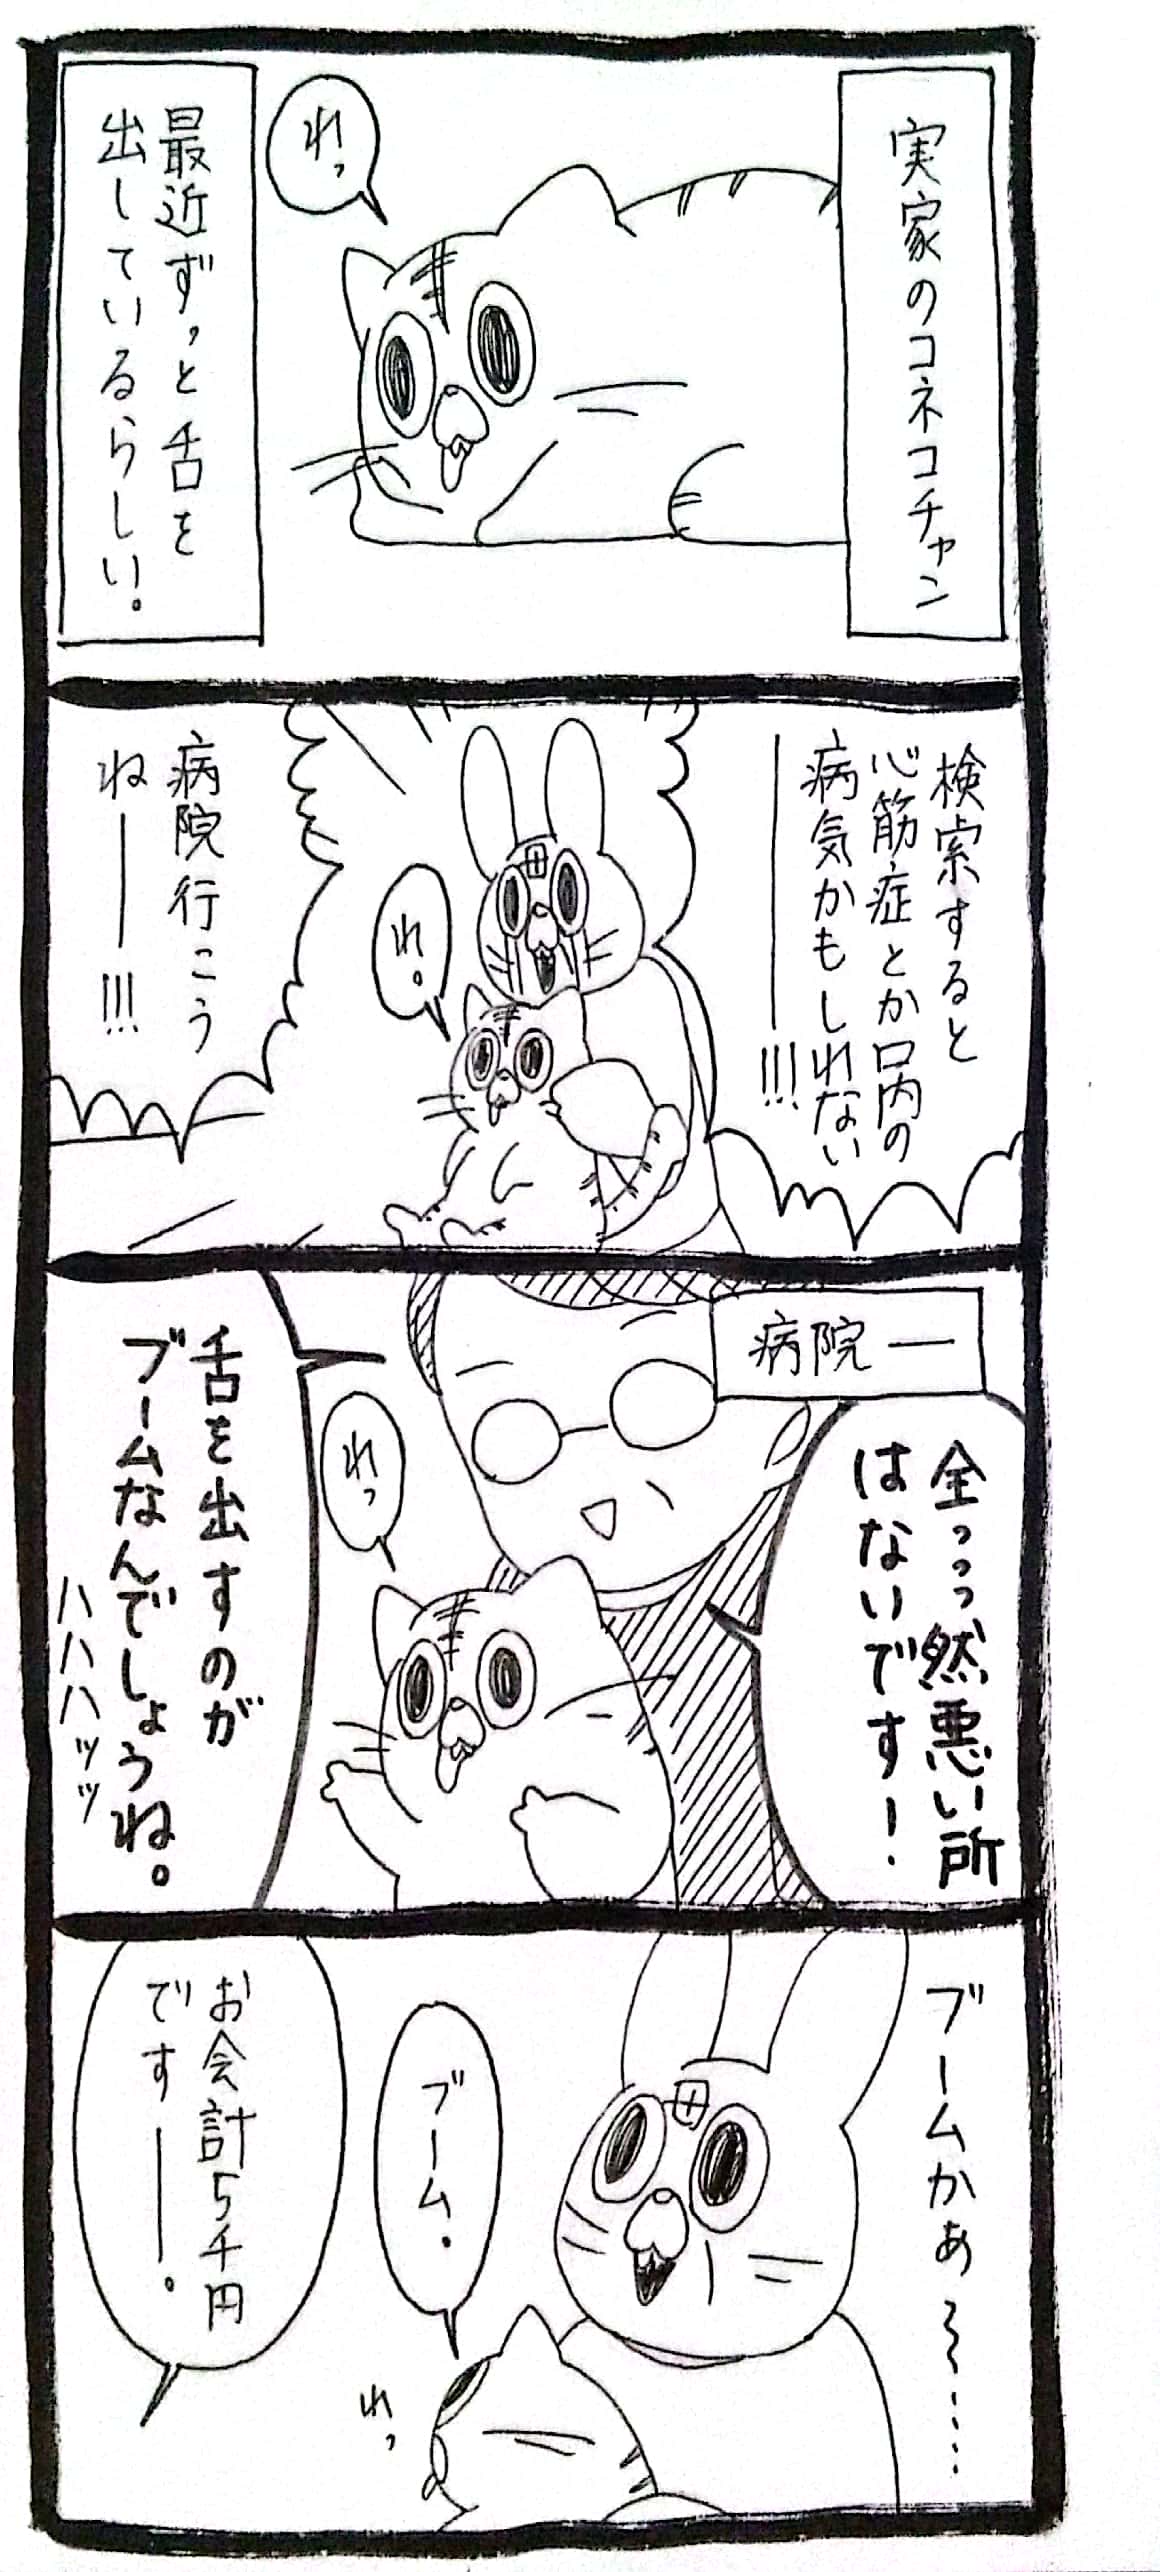 実家のコネコチャン
れっ
最近ずっと舌を
出しているらしい。
検索すると
心筋症とか口内の
病気かもしれない
――――!!!
れ。
病院行こう
ね――!!!
病院―
全っっっ然悪い所
はないです!
れっ
舌を出すのが
ブームなんでしょうね。
ハハハッッッ
ブームかぁ〜……
ブーム.
れっ
お会計5千円
です――。